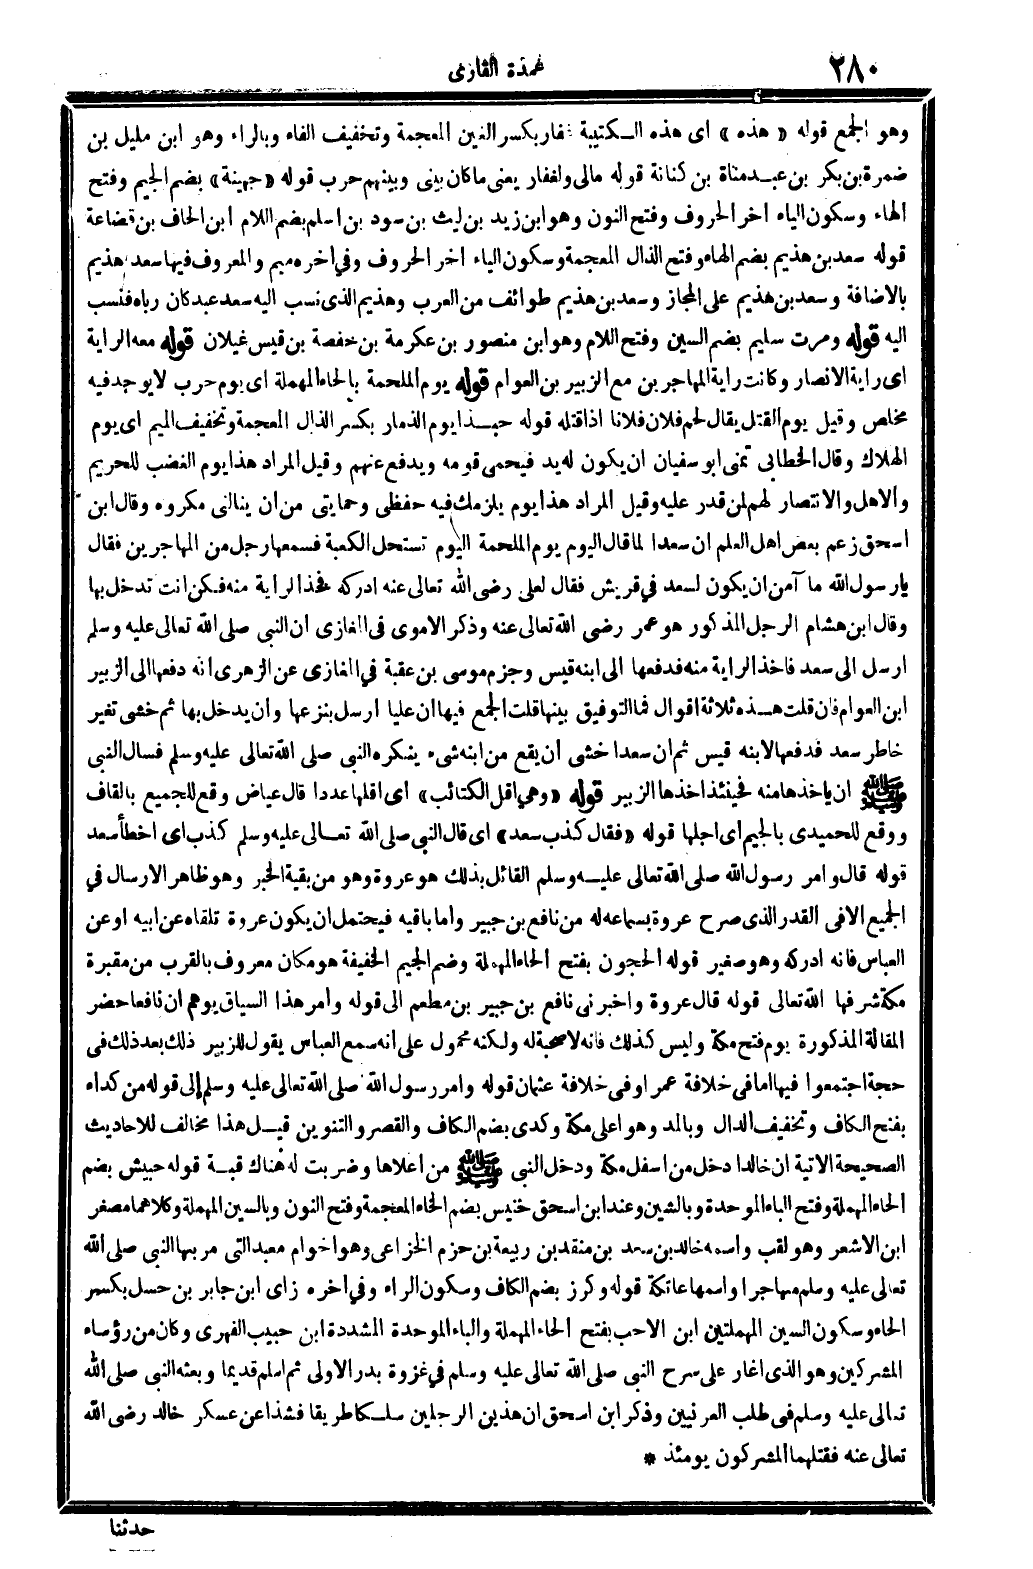 ٢٨٠
عمدة القارى
وهو الجمع قوله «هذه» اى هذه الكتيبة غفار بكسر الغين المعجمة وتخفيف الفاء وبالراء وهو ابن مليل بن
ضمرة بن بكر بن عبدمناة بن كنانة قوله مالى ولغفار يعنى ما كان بينى وبينهم حرب قوله «جهينة» بضم الجيم وفتح
الهاء وسكون الياء اخر الحروف وفتح النون وهو ابن زيد بن ليث بن سود بن اسلم بضم اللام ابن الحاف بن قضاعة
قوله سعد بن هذيم بضم الهاء وفتح الذال المعجمة وسكون الياء اخر الحروف وفي اخره ميم والمعروف فيها سعد هذيم
بالاضافة وسعد بن هذيم على المجاز وسعد بن هذيم طوائف من العرب وهذيم الذى نسب اليه سعد عبد كان رباه فنسب
اليه قوله ومرت سليم بضم السين وفتح اللام وهو ابن منصور بن عكرمة بن خفصة بن قيس غيلان قوله معه الراية
اى راية الانصار وكانت راية المهاجرين مع الزبير بن العوام قوله يوم الملحمة بالحاء المهملة اى يوم حرب لا يوجد فيه
مخلص وقيل يوم القتل يقال لحم فلان فلانا اذا قتله قوله حبذا يوم الذمار بكسر الذال المعجمة وتخفيف الميم اى يوم
الهلاك وقال الخطابي تمنى ابو سفيان ان يكون له يد فيحمى قومه ويدفع عنهم وقيل المراد هذا يوم الغضب للحريم
والاهل والانتصار لهم لمن قدر عليه وقيل المراد هذا يوم يلزمك فيه حفظى وحمايتى من ان ينالنى مكروه وقال ابن
اسحق زعم بعض اهل العلم ان سعدا لما قال اليوم يوم الملحمة اليوم تستحل الكعبة فسمعها رجل من المهاجرين فقال
يارسول الله ما آمن ان يكون لسعد في قريش فقال لعلى رضى الله تعالى عنه ادركه فخذ الراية منه فكن انت تدخل بها
وقال ابن هشام الرجل المذكور هو عمر رضى الله تعالى عنه وذكر الاموى فى المغازى ان النبى صلى الله تعالى عليه وسلم
ارسل الى سعد فاخذ الراية منه فدفعها الى ابنه قيس وجزم موسى بن عقبة في المغازى عن الزهرى انه دفعها الى الزبير
ابن العوام فان قلت هذه ثلاثة اقوال فما التوفيق بينها قلت الجمع فيها ان عليا ارسل بنزعها وان يدخل بها ثم خشى تغير
خاطر سعد فدفعها لابنه قيس ثم ان سعدا خشى ان يقع من ابنه شىء ينكره النبى صلى الله تعالى عليه وسلم فسال النبى
ﷺ ان ياخذها منه فحينئذ اخذها الزبير قوله «وهى اقل الكتائب» اى اقلها عددا قال عياض وقع للجميع بالقاف
ووقع للحميدى بالجيم اى اجلها قوله «فقال كذب سعد» اى قال النبى صلى الله تعالى عليه وسلم كذب اى اخطأ سعد
قوله قال وامر رسول الله صلى الله تعالى عليه وسلم القائل بذلك هو عروة وهو من بقية الخبر وهو ظاهر الارسال في
الجميع الا فى القدر الذى صرح عروة بسماعه له من نافع بن جبير واما باقيه فيحتمل ان يكون عروة تلقاه عن ابيه او عن
العباس فانه ادركه وهو صغير قوله الحجون بفتح الحاء المهملة وضم الجيم الخفيفة هو مكان معروف بالقرب من مقبرة
مكة شرفها الله تعالى قوله قال عروة واخبرنى نافع بن جبير بن مطعم الى قوله وامر هذا السياق يوهم ان نافعا حضر
المقالة المذكورة يوم فتح مكة وليس كذلك فانه لا صحبة له ولكنه محمول على انه سمع العباس يقول للزبير ذلك بعد ذلك فى
حجة اجتمعوا فيها اما فى خلافة عمر او فى خلافة عثمان قوله وامر رسول الله صلى الله تعالى عليه وسلم إلى قوله من كداء
بفتح الكاف وتخفيف الدال وبالمد وهو اعلى مكة وكدى بضم الكاف والقصر والتنوين قيل هذا مخالف للاحاديث
الصحيحة الاتية ان خالدا دخل من اسفل مكة ودخل النبى ﷺ من اعلاها وضربت له هناك قبة قوله حبيش بضم
الحاء المهملة وفتح الباء الموحدة وبالشين وعند ابن اسحق خنيس بضم الخاء المعجمة وفتح النون وبالسين المهملة وكلاهما مصغر
ابن الاشعر وهو لقب واسمه خالد بن سعد بن منقذ بن ربيعة بن حزم الخزاعى وهو اخو ام معبد التى مر بها النبى صلى الله
تعالى عليه وسلم مهاجرا واسمها عاتكة قوله وكرز بضم الكاف وسكون الراء وفي اخره زاى ابن جابر بن حسل بكسر
الحاء وسكون السين المهملتين ابن الاحب بفتح الحاء المهملة والباء الموحدة المشددة ابن حبيب الفهرى وكان من رؤساء
المشركين وهو الذى اغار على سرح النبى صلى الله تعالى عليه وسلم في غزوة بدر الاولى ثم اسلم قديما وبعثه النبى صلى الله
تعالى عليه وسلم فى طلب العرنيين وذكر ابن اسحق ان هذين الرجلين سلكا طريقا فشذا عن عسكر خالد رضى الله
تعالى عنه فقتلهما المشركون يومئذ *
حدثنا